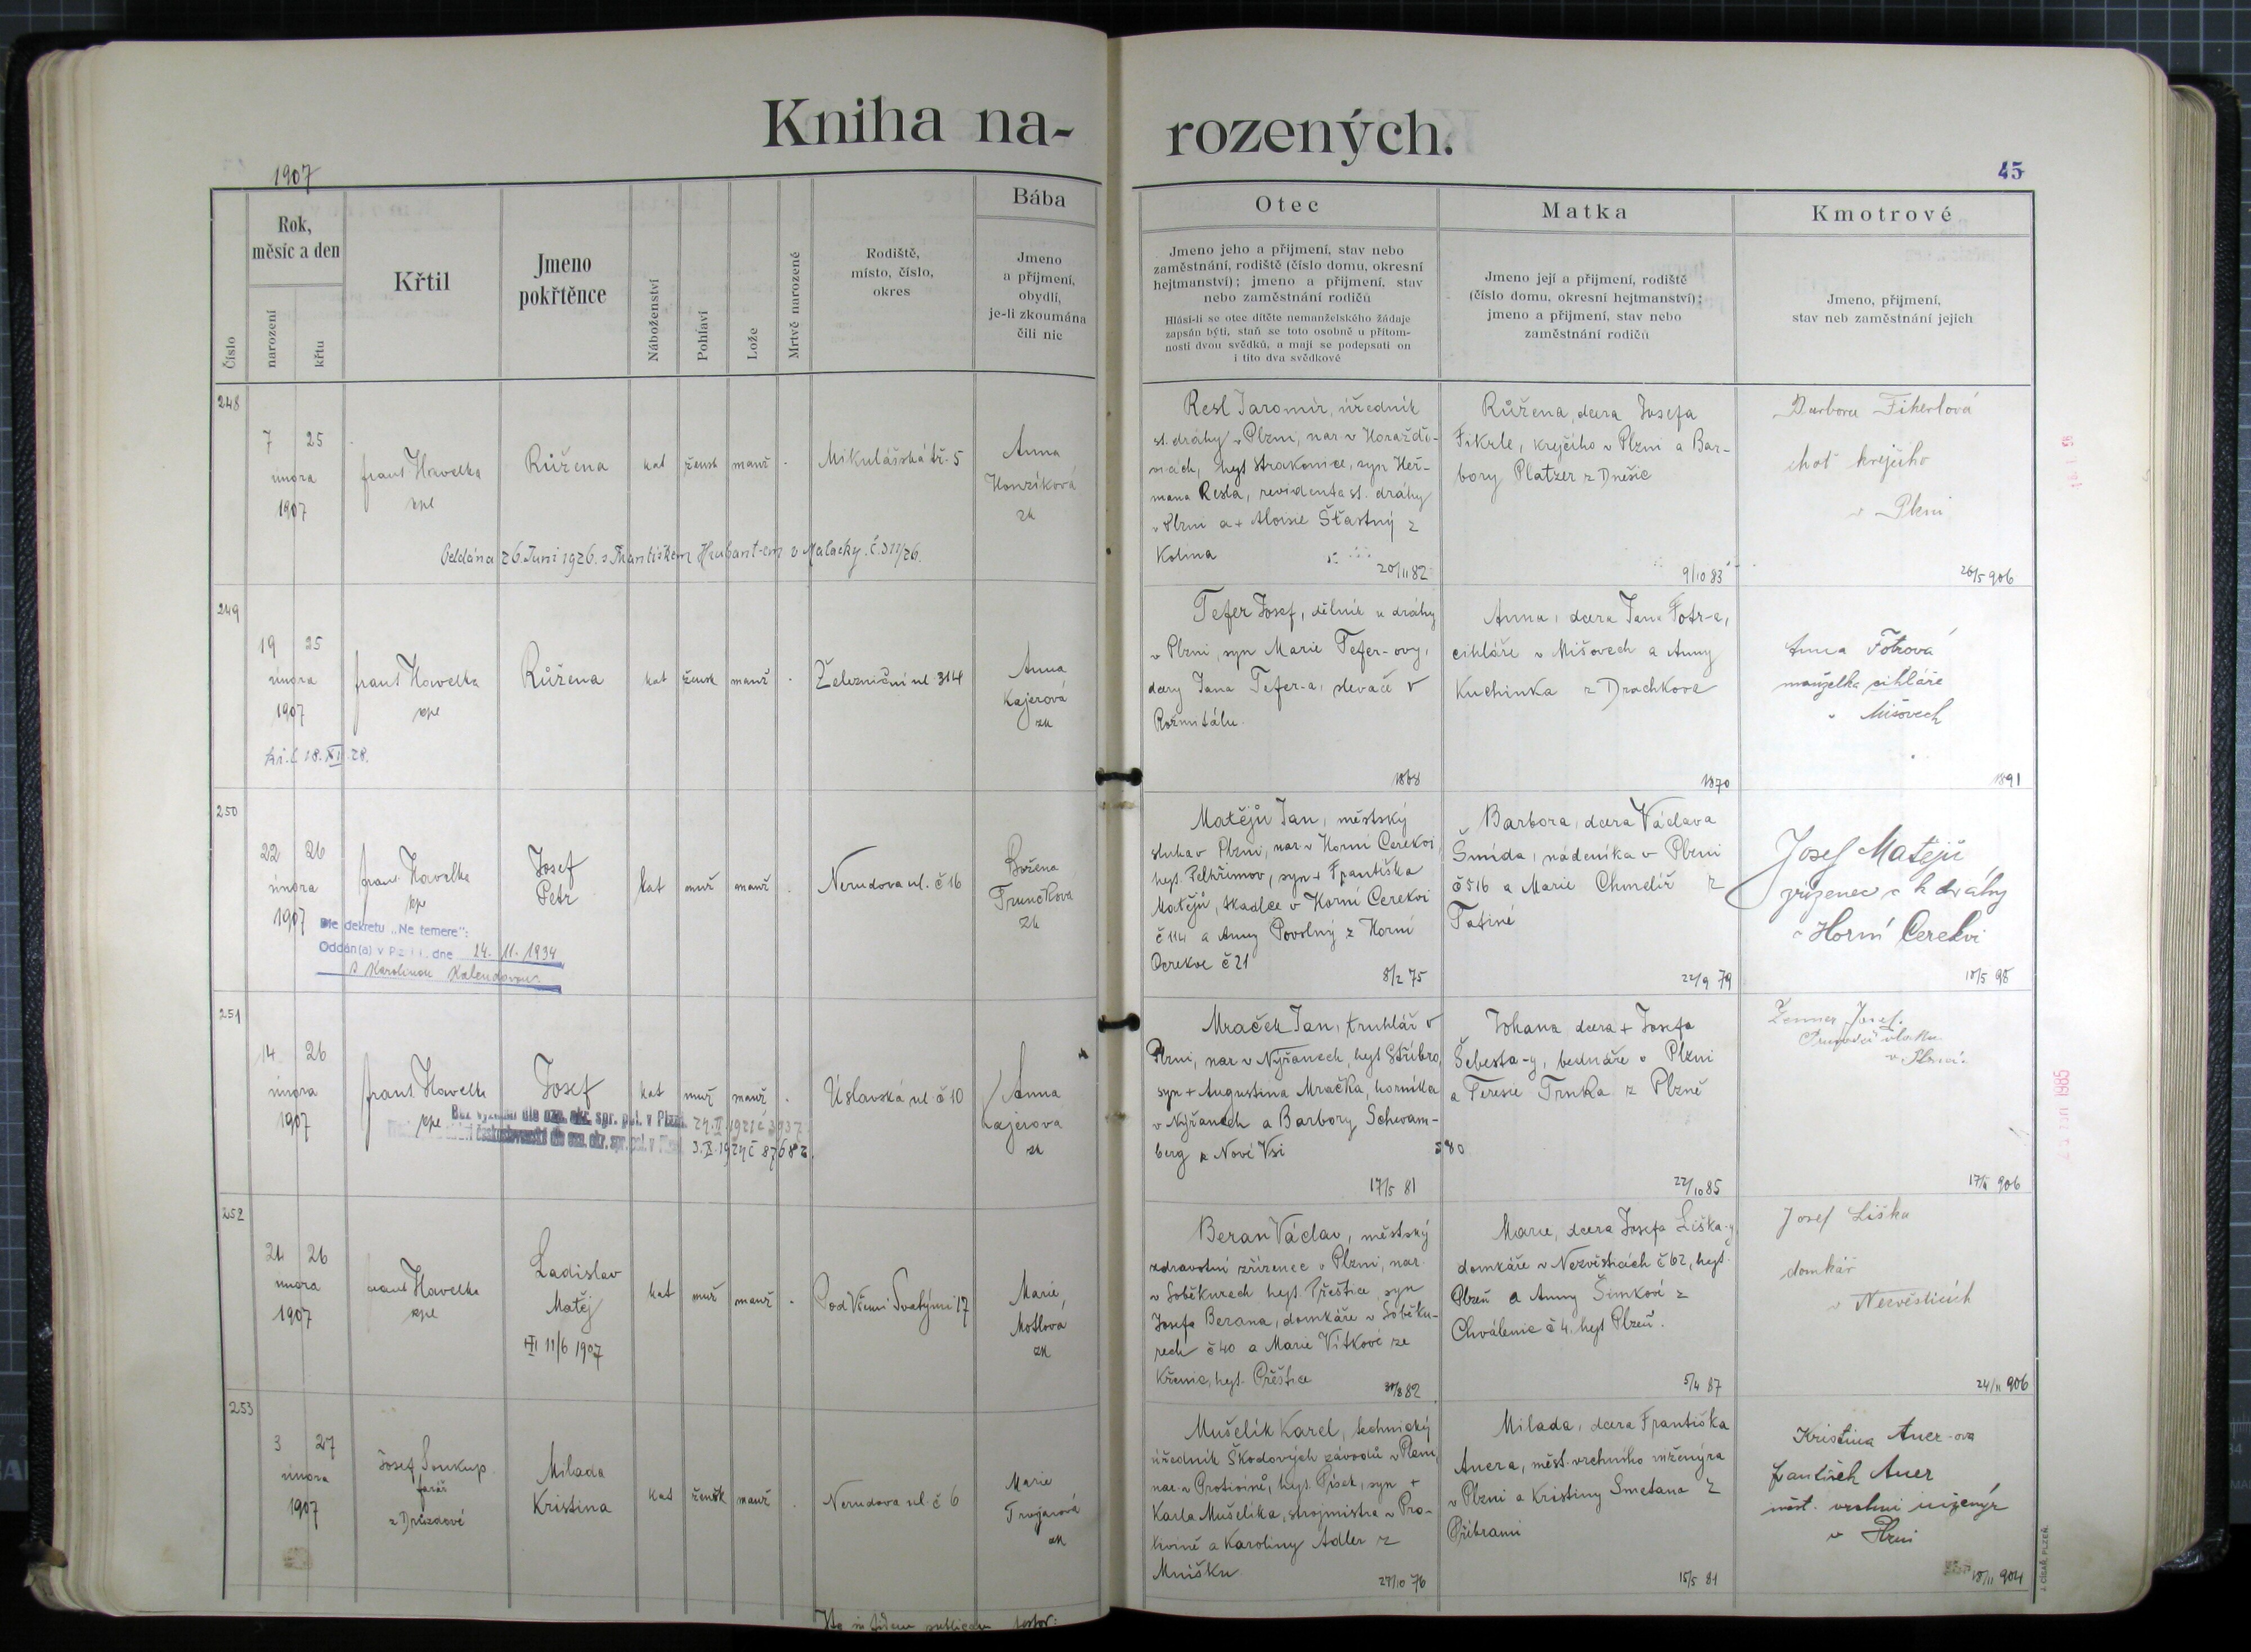 Kniha na-
rozených.
1907
45
Číslo
Rok,
měsíc a den
narození
křtu
Křtil
Jmeno
pokřtěnce
Náboženství
Pohlaví
Lože
Mrtvě narozené
Rodiště,
místo, číslo,
okres
Bába
Jmeno
a příjmení,
obydlí,
je-li zkoumána
čili nic
Otec
Jmeno jeho a přijmení, stav nebo
zaměstnání, rodiště (číslo domu, okresní
hejtmanství); jmeno a přijmení, stav
nebo zaměstnání rodičů
Hlásí-li se otec dítěte nemanželského žádaje
zapsán býti, staň se toto osobně u přítom-
nosti dvou svědků, a mají se podepsati on
i tito dva svědkové
Matka
Jmeno její a přijmení, rodiště
(číslo domu, okresní hejtmanství);
jmeno a přijmení, stav nebo
zaměstnání rodičů
Kmotrové
Jmeno, přijmení,
stav neb zaměstnání jejich
248
7 25
února
1907
frant Havelka
kpl
Růžena
kat žensk manž .
Mikulášská tř. 5
Anna
Honzíková
zk
Oddána 26. Juni 1926. s Františkem Hrubant-em v Malacky. č. 311/26.
Resl Jaromír, úředník
st. dráhy v Plzni, nar. v Horažďo-
vicích, hejt Strakonice, syn Heř-
mana Resla, revidenta st. dráhy
v Plzni a + Aloisie Šťastný z
Kolína
20/11 82
Růžena, dcera Josefa
Fikrle, krejčího v Plzni a Bar-
bory Platzer z Dnešic
9/10 83
Barbora Fikerlová
choť krejčího
v Plzni
26/5 906
249
19 25
února
1907
frant Havelka
kpl
Růžena
kat žensk manž .
Železniční ul. 314
Anna
Kajerová
zk
18. XI. 28.
Tefer Josef, dělník u dráhy
v Plzni, syn Marie Tefer-ovy,
dcery Jana Tefer-a, slevače v
Rožmitálu.
1868
Anna, dcera Jana Fotr-a,
cihláře v Mišovech a Anny
Kuchinka z Drachkova
1870
Anna Fotrová
manželka cihláře
v Mišovech
1891
250
22 26
února
1907
frant. Havelka
kpl
Josef
Petr
kat muž manž .
Nerudova ul. č 16
Božena
Trunčková
Zk
Dle dekretu „Ne temere“:
Oddán(a) v Plzni dne 24. 11. 1934
s Karolinou Kalendovou
Matějů Jan, městský
sluha v Plzni, nar. v Horní Cerekvi,
hejt. Pelhřimov, syn + Františka
Matějů, tkadlce v Horní Cerekvi
č 114 a Anny Povolný z Horní
Cerekve č 21
8/2 75
Barbora, dcera Václava
Šmída, nádeníka v Plzni
č 516 a Marie Chmelíř z
Tatiné
22/9 79
Josef Matějů
zřízenec c k dráhy
v Horní Cerekvi
18/5 98
251
14 26
února
1907
frant Havelka
kpl
Josef
kat muž manž .
Úslavská ul č 10
Anna
Kajerová
zk
Bez vyznání dle ozn. okr. spr. pol. v Plzni. 24. II. 1921 č 3937
československé dle ozn. okr. spr. pol. v Plzni 3. X. 1924 č 87682.
Mraček Jan, truhlář v
Plzni, nar v Nýřanech, hejt Stříbro,
syn + Augustina Mračka, horníka
v Nýřanech a Barbory Schwam-
berg z Nové Vsi
17/5 81
Johana dcera + Josefa
Šebesta-y, bednáře v Plzni
a Teresie Trnka z Plzně
580
22/10 85
Zenner Josef.
Průvodčí vlaku
v Plzni.
17/5 906
252
24 26
února
1907
frant Havelka
kpl
Ladislav
Matěj
11/6 1907
kat muž manž .
Pod Všemi Svatými 17
Marie
Motlová
zk
Beran Václav, městský
zdravotní zřízenec v Plzni, nar.
v Soběkurech hejt. Přeštice, syn
Josefa Berana, domkáře v Soběku-
rech č 40 a Marie Vítkové ze
Křenic, hejt. Přeštice
31/8 82
Marie, dcera Josefa Liška-y,
domkáře v Nezvěsticích č 62, hejt.
Plzeň a Anny Šimkové z
Chválenic č 4. hejt Plzeň.
5/4 87
Josef Liška
domkář
v Nezvěsticích
24/11 906
253
3 27
února
1907
Josef Soukup
farář
z Druzdové
Milada
Kristina
kat žensk manž .
Nerudova ul. č 6
Marie
Trojanová
zk
Mušelík Karel, technický
úředník Škodových závodů v Plzni,
nar. v Protivíně, hejt. Písek, syn +
Karla Mušelíka, strojmistra v Pro-
tivíně a Karoliny Adler z
Mníšku
27/10 76
Milada, dcera Františka
Auera, měst. vrchního inženýra
v Plzni a Kristiny Smetana z
Příbrami
15/5 81
Kristina Auer-ova
František Auer
měst. vrchní inženýr
v Plzni
18/11 904
J. CÍSAŘ, PLZEŇ.